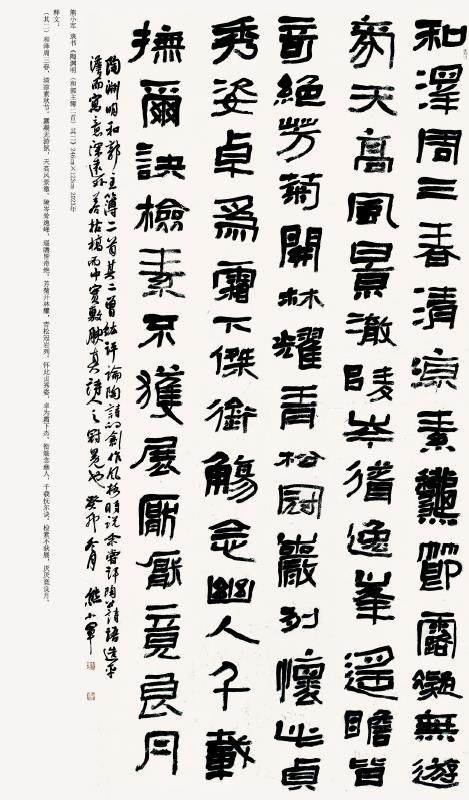 和澤周三春清涼素龝節露凝無遊
氛天高風景澈陵岑聳逸峯遥瞻皆
奇絶芳菊開林耀青松冠巖列懷此貞
秀姿卓為霜下傑銜觴念幽人千載
撫爾訣檢素不獲展厭厭竟良月
陶淵明和郭主簿二首其二曾紘評論陶詩的創作風格時説余嘗評陶公詩語造平
澹而寓意深遠外若枯槁而中實敷腴真詩人之冠冕也癸卯冬月 熊小軍
熊小军 隶书《陶渊明〈和郭主簿二首〉其二》 246cm×125cm 2023年
释文：
（其二）和泽周三春，清凉素秋节。露凝无游氛，天高风景澈。陵岑耸逸峰，遥瞻皆奇绝。芳菊开林耀，青松冠岩列。怀此贞秀姿，卓为霜下杰。衔觞念幽人，千载抚尔诀。检素不获展，厌厌竟良月。